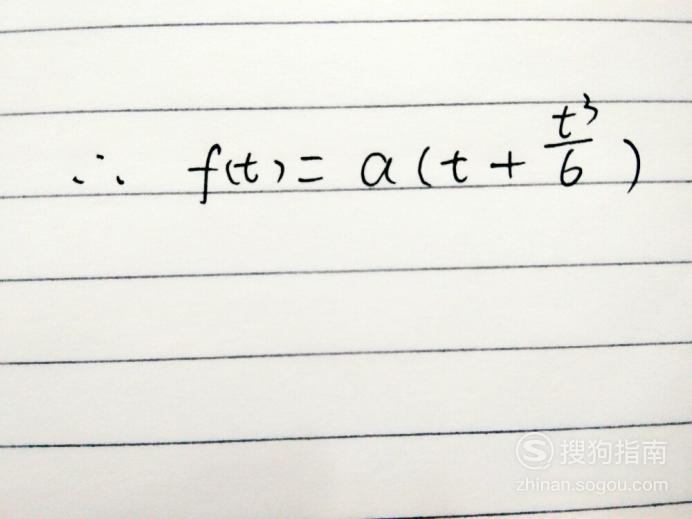 ∴ f(t) = a(t + t³/6)
S 搜狗指南
zhinan.sogou.com